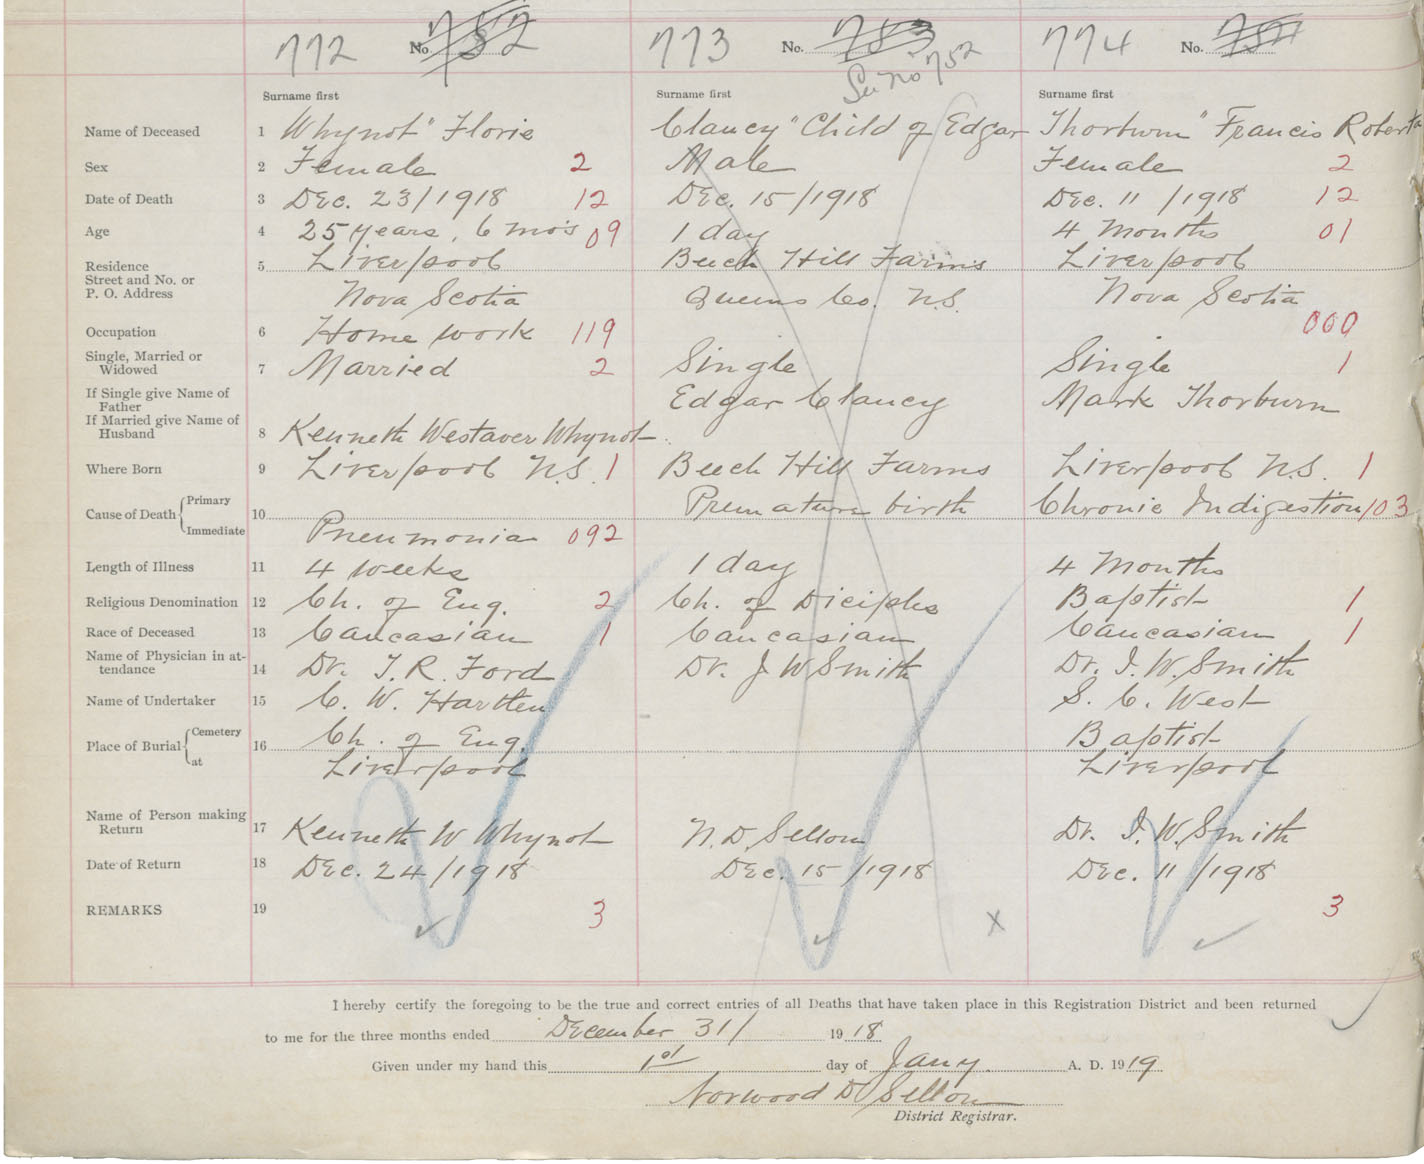 772 No. 752 773 No. 753 774 No. 754
See No 752
Surname first Surname first Surname first
Name of Deceased 1 Whynot" Florie Clancy "Child of Edgar Thorburn" Francis Roberta
Sex 2 Female 2 Male Female 2
Date of Death 3 Dec. 23/1918 12 Dec. 15/1918 Dec. 11/1918 12
Age 4 25 years, 6 mo's 09 1 day 4 Months 01
Residence 5 Liverpool Beech Hill Farms Liverpool
Street and No. or
P. O. Address Nova Scotia Queens Co. N.S. Nova Scotia
Occupation 6 Home work 119 000
Single, Married or
Widowed 7 Married 2 Single Single 1
If Single give Name of
Father Edgar Clancy Mark Thorburn
If Married give Name of
Husband 8 Kenneth Westaver Whynot
Where Born 9 Liverpool N.S. 1 Beech Hill Farms Liverpool N.S. 1
Cause of Death Primary 10 Premature birth Chronic Indigestion 103
Immediate Pneumonia 092
Length of Illness 11 4 weeks 1 day 4 Months
Religious Denomination 12 Ch. of Eng. 2 Ch. of Diciples Baptist 1
Race of Deceased 13 Caucasian 1 Caucasian Caucasian 1
Name of Physician in at-
tendance 14 Dr. T. R. Ford Dr. J W Smith Dr. J. W. Smith
Name of Undertaker 15 C. W. Hartlen S. C. West
Place of Burial Cemetery 16 Ch. of Eng. Baptist
at Liverpool Liverpool
Name of Person making
Return 17 Kenneth W Whynot N. D. Sellon Dr. J. W. Smith
Date of Return 18 Dec. 24/1918 Dec. 15/1918 Dec. 11/1918
REMARKS 19 3 X 3
I hereby certify the foregoing to be the true and correct entries of all Deaths that have taken place in this Registration District and been returned
to me for the three months ended December 31/ 1918
Given under my hand this 1st day of Jany. A. D. 1919
Norwood D Sellon
District Registrar.